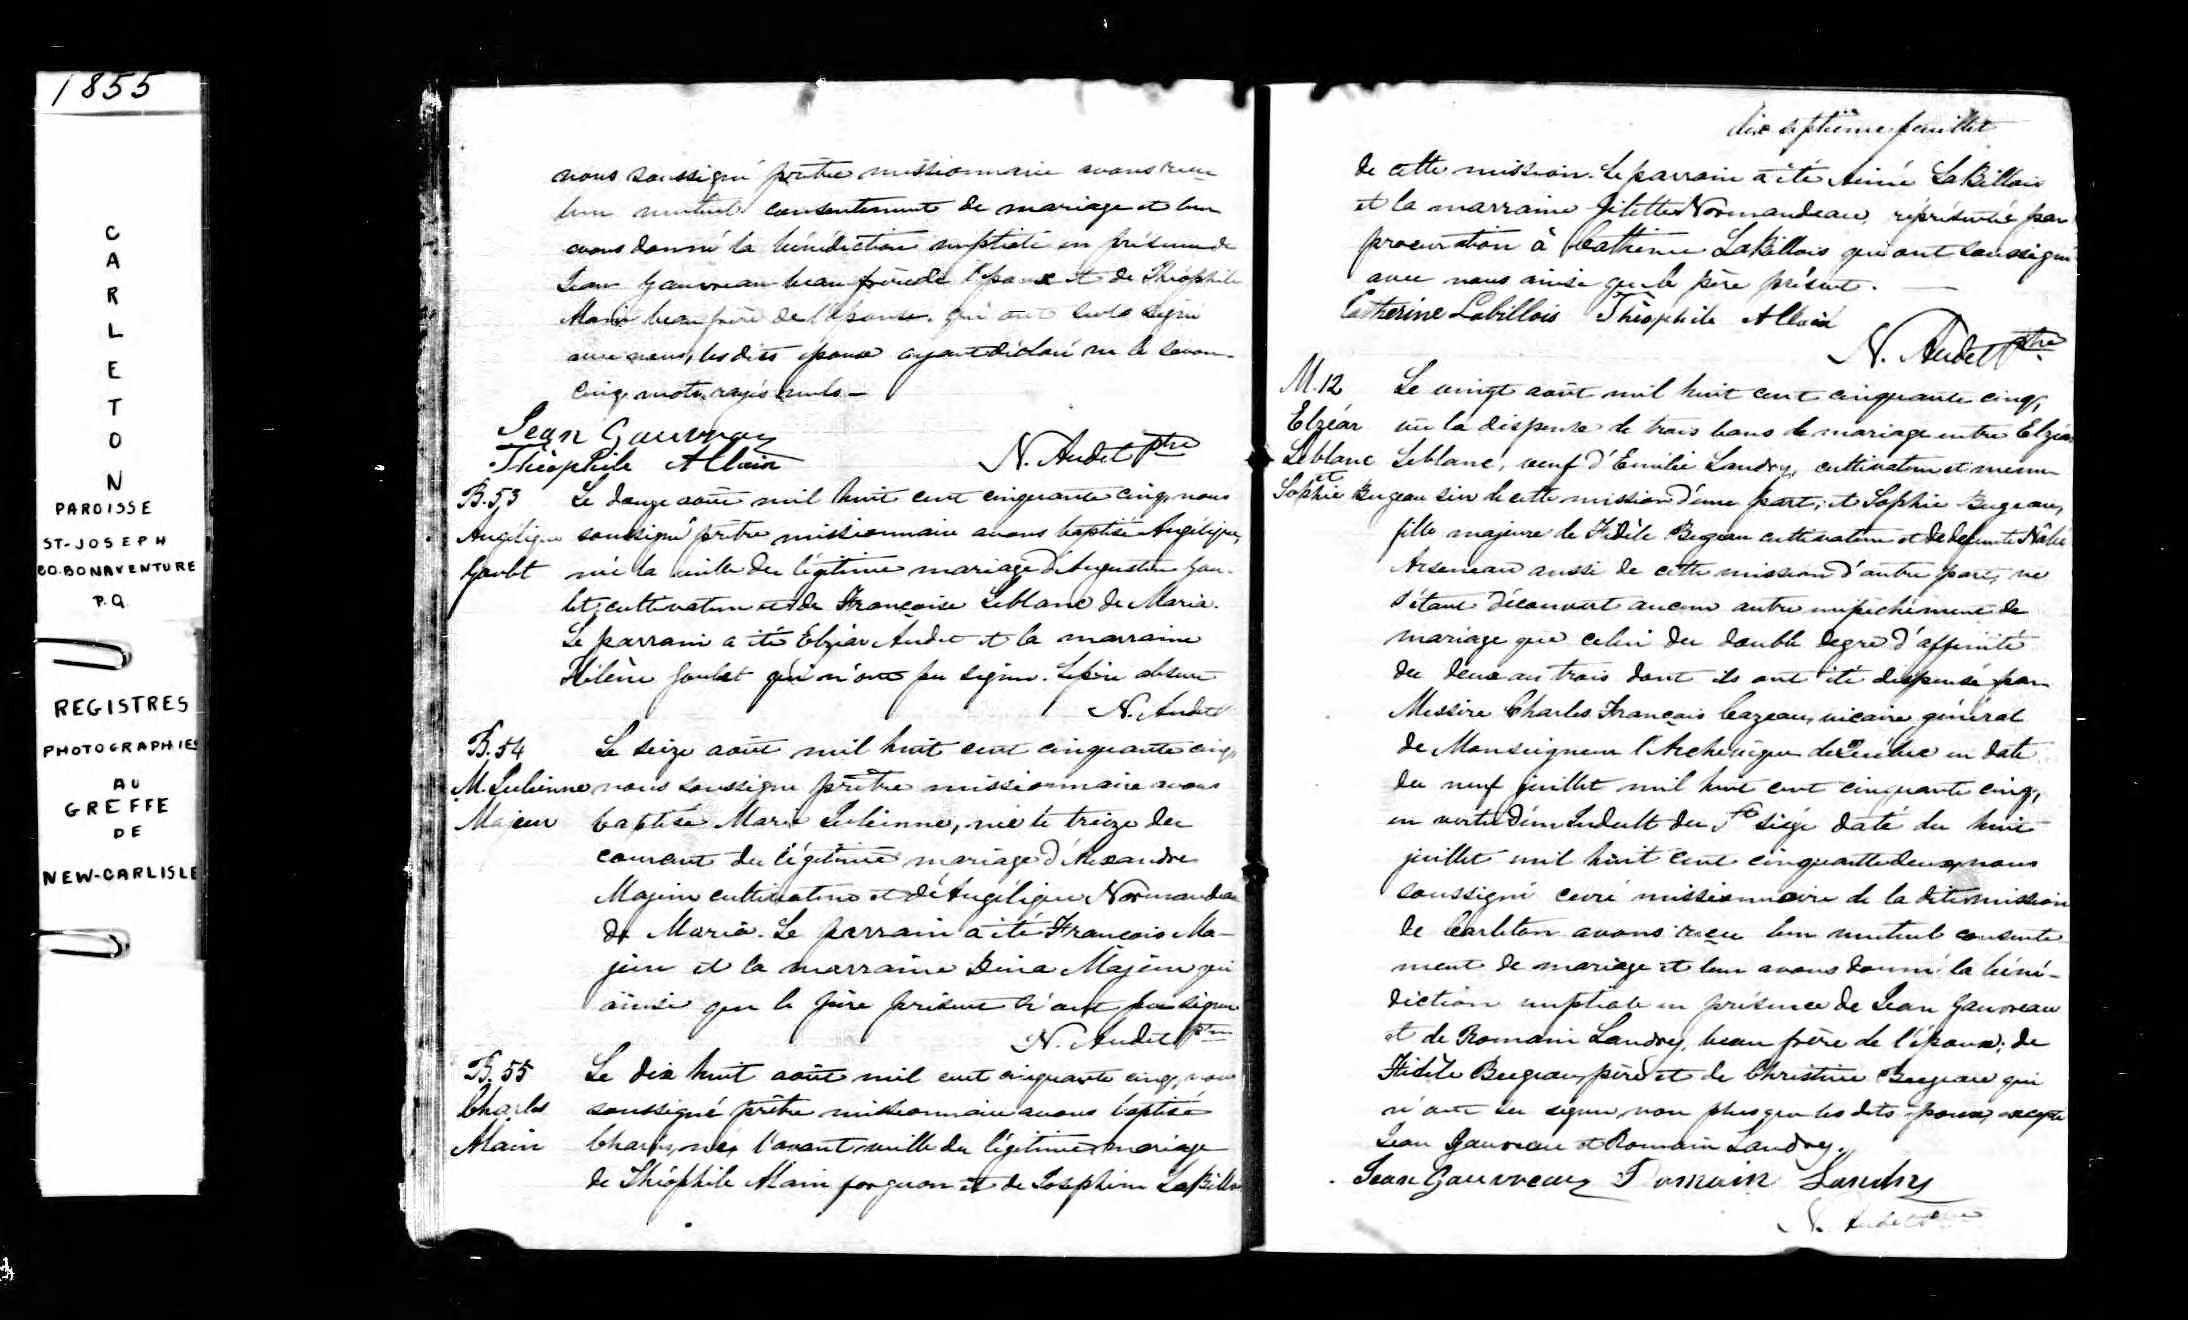 1855
CARLETON
PAROISSE
ST-JOSEPH
CO. BONAVENTURE
P.Q.
REGISTRES
PHOTOGRAPHIES
AU
GREFFE
DE
NEW-CARLISLE
nous soussigné prêtre missionnaire avons reçu
leur mutuel consentement de mariage et leur
avons donné la bénédiction nuptiale en présence de
Jean Gauvreau beau frère de l'époux et de Théophile
Alain beau frère de l'épouse qui ont seuls signé
avec nous, les dits époux ayant déclaré ne le savoir.
Cinq mots rayés nuls —
Jean Gauvreau
Théophile Allain
N. Audet Ptre
B. 53
Angélique
Goulet
Le douze août mil huit cent cinquante cinq, nous
soussigné prêtre missionnaire avons baptisé Angélique,
née la veille du légitime mariage d'Augustin Gou-
let, cultivateur et de Françoise Leblanc de Maria.
Le parrain a été Elzéar Audet et la marraine
Hélène Goulet qui n'ont pu signer. Le père absent
N. Audet
B. 54
M. Julienne
Majeur
Le seize août mil huit cent cinquante cinq,
nous soussigné prêtre missionnaire avons
baptisé Marie Julienne, née le treize du
courant du légitime mariage d'Alexandre
Majeur cultivateur et d'Angélique Normandeau
de Maria. Le parrain a été François Ma-
jeur et la marraine Dina Majeur qui
ainsi que le père présent n'ont pu signer
N. Audet Ptre
B. 55
Charles
Alain
Le dix huit août mil cent cinquante cinq, nous
soussigné prêtre missionnaire avons baptisé
Charles, né l'avant veille du légitime mariage
de Théophile Alain forgeron et de Josephine LaBillois
dix septième feuillet
de cette mission. Le parrain a été Aimé LaBillois
et la marraine Gilette Normandeau, représentée par
procuration à Catherine LaBillois qui ont soussigné
avec nous ainsi que le père présent. —
Catherine Labillois Théophile Allain
N. Audet Ptre
M. 12
Elzéar
Leblanc
et
Sophie Bugeau
Le vingt août mil huit cent cinquante cinq,
vu la dispense de trois bans de mariage entre Elzéar
Leblanc, veuf d'Emilie Landry, cultivateur et menui-
sier de cette mission d'une part; et Sophie Bugeau,
fille majeure de Fidèle Bugeau cultivateur et de defunte
Arseneau aussi de cette mission d'autre part, ne
s'étant découvert aucun autre empêchement de
mariage que celui du double degré d'affinité
du deux au trois dont ils ont été dispensé par
Messire Charles François Cazeau, vicaire général
de Monseigneur l'Archevêque de Québec en date
du neuf juillet mil huit cent cinquante cinq,
en vertu d'un Indult du St siège daté du huit
juillet mil huit cent cinquante deux, nous
soussigné curé missionnaire de la dite mission
de Carleton avons reçu leur mutuel consente-
ment de mariage et leur avons donné la béné-
diction nuptiale en présence de Jean Gauvreau
et de Romain Landry, beau frère de l'époux; de
Fidèle Bugeau, père et de Christine Bugeau qui
n'ont su signer, non plus que les dits époux, excepté
Jean Gauvreau et Romain Landry.
Jean Gauvreau Romain Landry
N. Audet Ptre